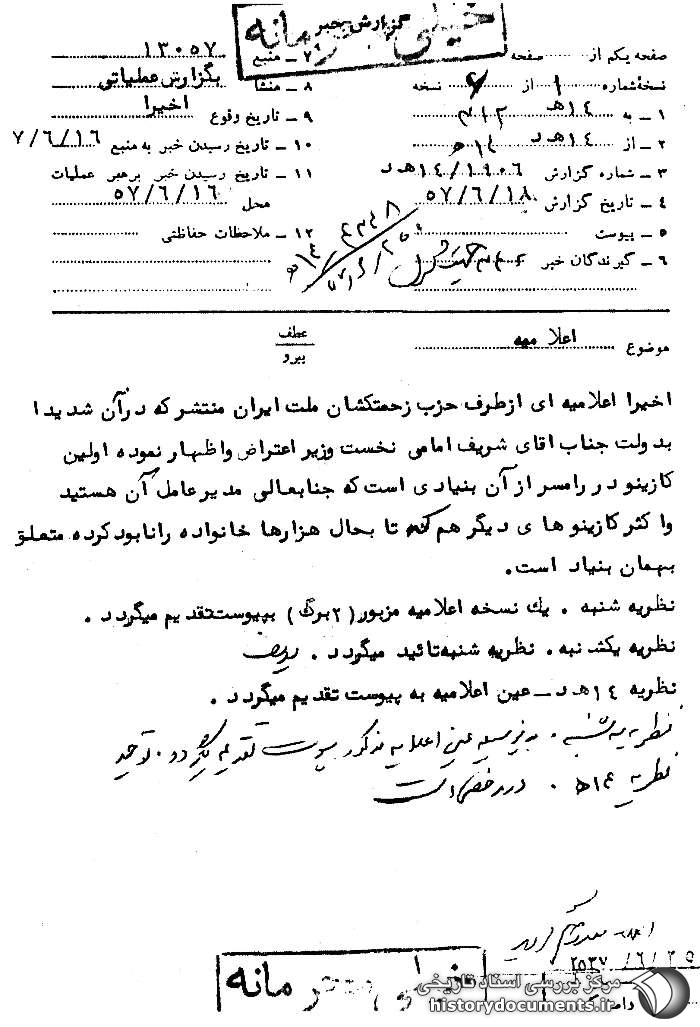 خیلی محرمانه
گزارش خبر
صفحه یکم از صفحه
نسخهٔ شماره ۱ از نسخه
۱ – به ۱۴هـ ۳۱۲
۲ – از ۱۴هـ د ۱۴هـ
۳ – شماره گزارش ۱۴/۱۹۰۶هـ د
۴ – تاریخ گزارش ۵۷/۶/۱۸
۵ – پیوست
۶ – گیرندگان خبر
۷ – منبع ۱۳۰۵۷
۸ – منشأ بگزارش عملیاتی
۹ – تاریخ وقوع اخیرا
۱۰ – تاریخ رسیدن خبر به منبع ۷/۶/۱۶
۱۱ – تاریخ رسیدن خبر برهبر عملیات
محل ۵۷/۶/۱۶
۱۲ – ملاحظات حفاظتی
موضوع اعلامیه
عطف
پیرو
اخیرا اعلامیه ای ازطرف حزب زحمتکشان ملت ایران منتشر که درآن شدیدا
بدولت جناب اقای شریف امامی نخست وزیر اعتراض واظهار نموده اولین
کازینو در رامسر از آن بنیادی است که جنابعالی مدیرعامل آن هستید
واکثر کازینو های دیگر هم که تا بحال هزارها خانواده رانابودکرده متعلق
بهمان بنیاد است.
نظریه شنبه . یك نسخه اعلامیه مزبور (۲برگ) بپیوست تقدیم میگردد .
نظریه یکشنبه . نظریه شنبه تائید میگردد .
نظریه ۱۴هـ د – عین اعلامیه به پیوست تقدیم میگردد .
نظریه سه شنبه . عین اعلامیه مذکور بپیوست تقدیم میگردد . توحید
نظریه ۱۴هـ .
۲۵۳۷/۶/۲۵
خیلی محرمانه
مرکز بررسی اسناد تاریخی
historydocuments.ir